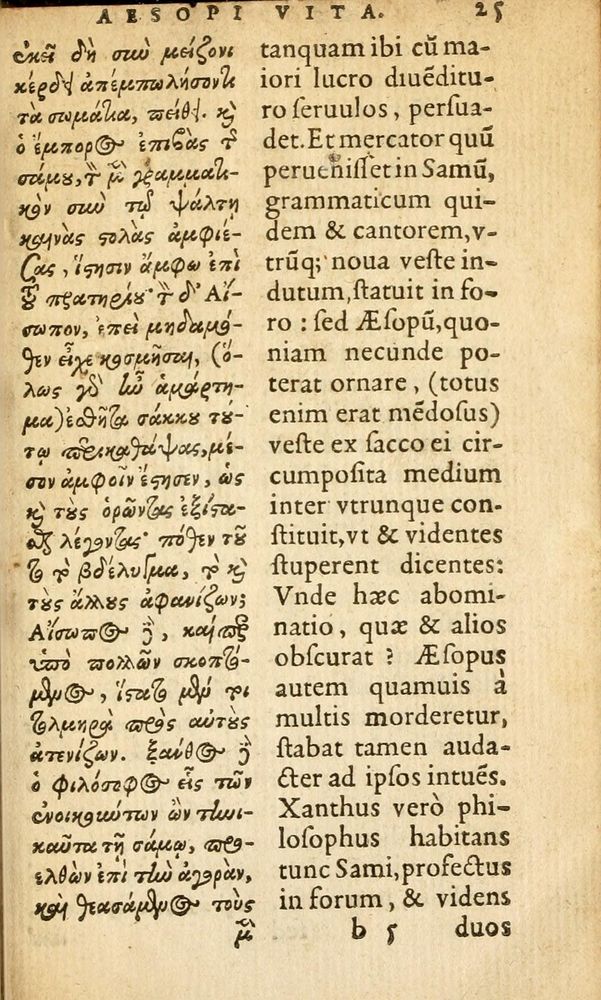 AESOPI VITA. 25
ἐκεῖ δὴ σὺν μείζονι
κέρδει ἀπεμπωλήσοντι
τὰ σωμάτια, πείθει. καὶ
ὁ ἔμπορος ἐπιβὰς τῆς
σάμου, τὸν μὲν γραμματι-
κὸν σὺν τῷ ψάλτῃ
καινὰς στολὰς ἀμφιέ-
σας, ἵστησιν ἄμφω ἐπὶ
τοῦ πρατηρίου· τὸν δ' Αἴ-
σωπον, ἐπεὶ μηδαμό-
θεν εἶχε κοσμῆσαι, (ὅ-
λως γὰρ ἦν ἁμάρτη-
μα) ἐσθῆτα σάκκου τού-
τῳ περικαθάψας, μέ-
σον ἀμφοῖν ἔστησεν, ὡς
καὶ τοὺς ὁρῶντας ἐξίστα-
σθαι λέγοντας· πόθεν τοῦ-
το τὸ βδέλυγμα, τὸ καὶ
τοὺς ἄλλους ἀφανίζων;
Αἴσωπος δὲ, καίπερ
ὑπὸ πολλῶν σκοπτό-
μενος, ἵστατο μέντοι
τολμηρὰ πρὸς αὐτοὺς
ἀτενίζων. ξάνθος δὲ
ὁ φιλόσοφος εἷς τῶν
ἐνοικούντων ὢν τηνι-
καῦτα τῇ σάμῳ, προ-
ελθὼν ἐπὶ τὴν ἀγορὰν,
καὶ θεασάμενος τοὺς
μὲν
tanquam ibi cũ ma-
iori lucro diuẽditu-
ro seruulos, persua-
det. Et mercator quũ
peruenisset in Samũ,
grammaticum qui-
dem & cantorem, v-
trũq; noua veste in-
dutum, statuit in fo-
ro : sed Æsopũ, quo-
niam necunde po-
terat ornare, (totus
enim erat mẽdosus)
veste ex sacco ei cir-
cumposita medium
inter vtrunque con-
stituit, vt & videntes
stuperent dicentes:
Vnde hæc abomi-
natio, quæ & alios
obscurat ? Æsopus
autem quamuis à
multis morderetur,
stabat tamen auda-
cter ad ipsos intuẽs.
Xanthus verò phi-
losophus habitans
tunc Sami, profectus
in forum, & videns
b 5 duos